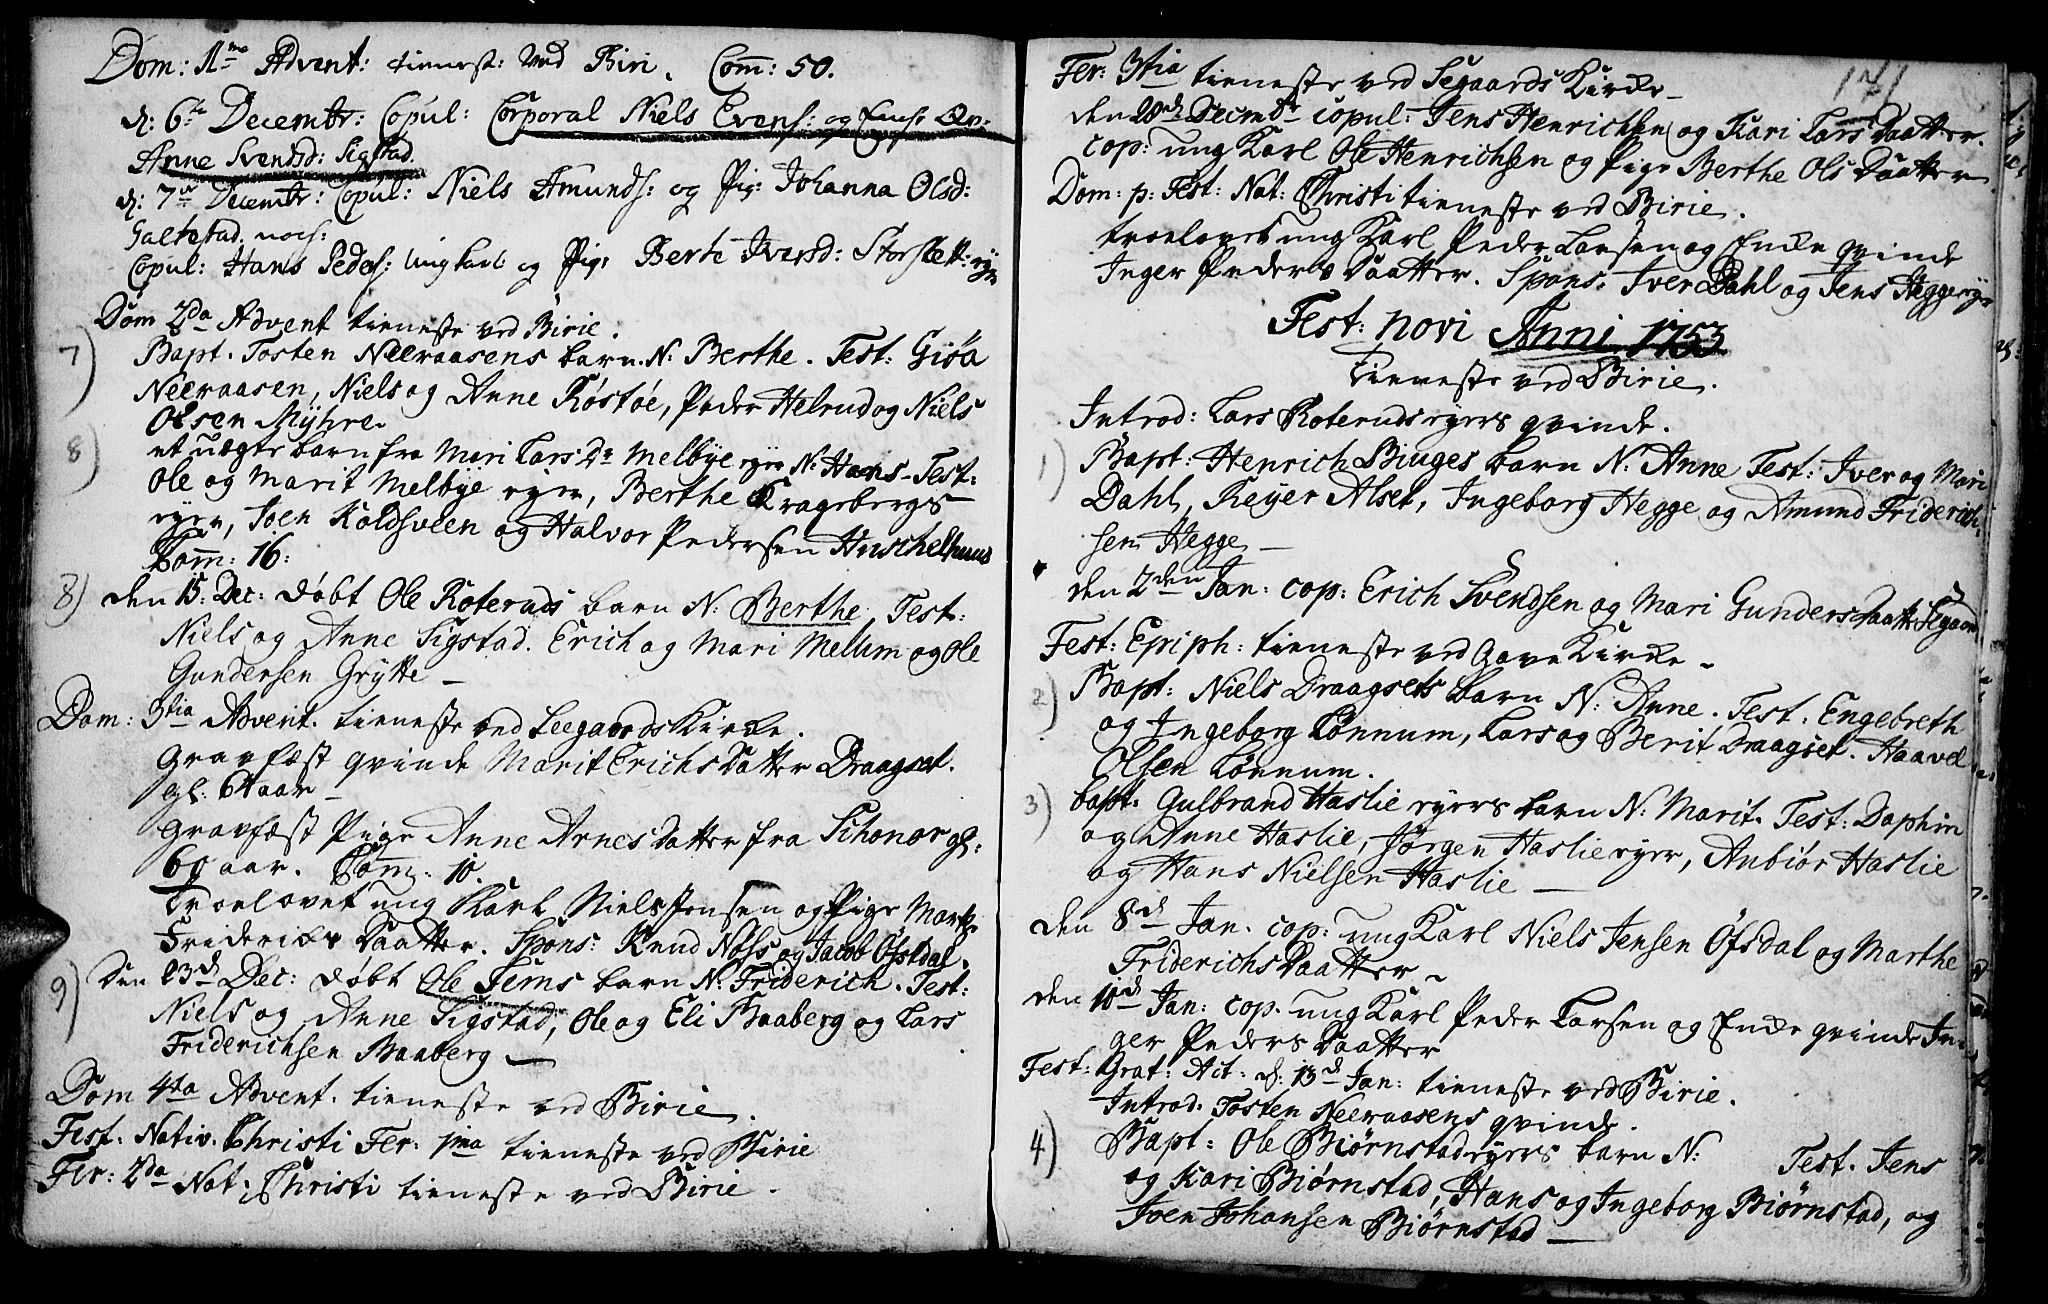 Dom: 1me Advent: tienest: ved Biri. Com̄: 50.
d: 6te Decembr: Copul: Corporal Niels Evens: og
Anne Svendsd: Sigstad.
d: 7de Decembr: Copul: Niels Amunds: og Pig: Johanna Olsd:
Galtestad
Copul: Hans Peders: ungkarl og Pig: Berte Iversd: Storslett:eye
Dom 2da Advent tieneste ved Birie.
7) Bapt. Tosten Neeraasens barn. N: Berthe. Test: Giöa
Neeraasen, Niels og Anne Röstöe, Peder Helrud og Niels
Olsen Myhre.
8) et uægte barn fra Mari Lars Dr Melbye eyer N: Hans - Test:
Ole og Marit Melbye eyer, Berthe Kragebergs
eyer, Joen Koldsveen og Halvor Pedersen Huschelhuus
Com̄: 16:
8) den 15: Dec: döbt Ole Roteruds barn N: Berthe, Test:
Niels og Anne Sigstad. Erich og Mari Mellum og Ole
Gundersen Grytte -
Dom: 3tia Advent. tieneste ved Seegaards Kirke.
gravfæst qvinde Marit Erichsdatter Draagset.
gl: 61 aar -
gravfæst Pige Anne Arnesdatter fra Schonor gl:
60 aar. Com̄: 10.
Troelovet ung Karl Niels Jensen og Pige Marthe
Fridericks Daatter. Spons: Knud Noss og Jacob Öfsdal.
9) den 23d Dec: döbt Ole Tems barn N: Friderich. Test:
Niels og Anne Sigstad, Ole og Eli Baaberg og Lars
Friderichsen Baaberg -
Dom 4ta Advent. tieneste ved Birie.
Fest: Nativ. Christi Fer: 1ma tieneste ved Birie
Fer: 2da Nat: Christi tieneste ved Birie.
171
Fer: 3tia tieneste ved Seegaards Kirke -
den 28de Decembr copul: Jens Henrichsen og Kari Lars Daatter.
cop: ung Karl Ole Henrichsen og Pige Berthe Ols Daatter
Dom: p: Fest: Nat: Christi tieneste ved Birie.
troelovet ung Karl Peder Larsen og Enke qvinde
Inger Peders Daatter. Spons: Iver Dahl og Jens Heggeeye
Fest: novi Anni 1753
tieneste ved Birie.
Introd: Lars Roterudseyers qvinde.
1) Bapt: Henrich Biuges barn N: Anne Test: Iver og Mari
Dahl, Reyer Alset, Ingeborg Hegge og Amund Friderich-
sen Hegge -
den 2den Jan: cop: Erich Svendsen og Mari Gunders Daatter Segaard
Fest: Epiph: tieneste ved Gave Kirke -
2) Bapt: Niels Draagsets barn N: Anne. Test: Engebreth
og Ingeborg Lönnum, Lars og Berit Draagset. Haavel
Olsen Lönnum.
3) bapt. Gulbrand Haslie eyers barn N: Marit. Test: Daphin
og Anne Haslie, Jörgen Haslie eyer, Anbiör Haslie
og Hans Nielsen Haslie -
den 8d Jan. cop: ung Karl Niels Jensen Öfsdal og Marthe
Friderichs Daatter -
den 10d Jan: cop. ung Karl Peder Larsen og Enke qvinde In-
ger Peders Daatter
Fest: Grat: Act: d: 13d Jan: tieneste ved Birie.
Introd: Tosten Neeraasens qvinde.
4) Bapt: Ole Biörnstadeyers barn N: Test. Jens
og Kari Biörnstad, Hans og Ingeborg Biörnstad, og
Joen Johansen Biörnstad -